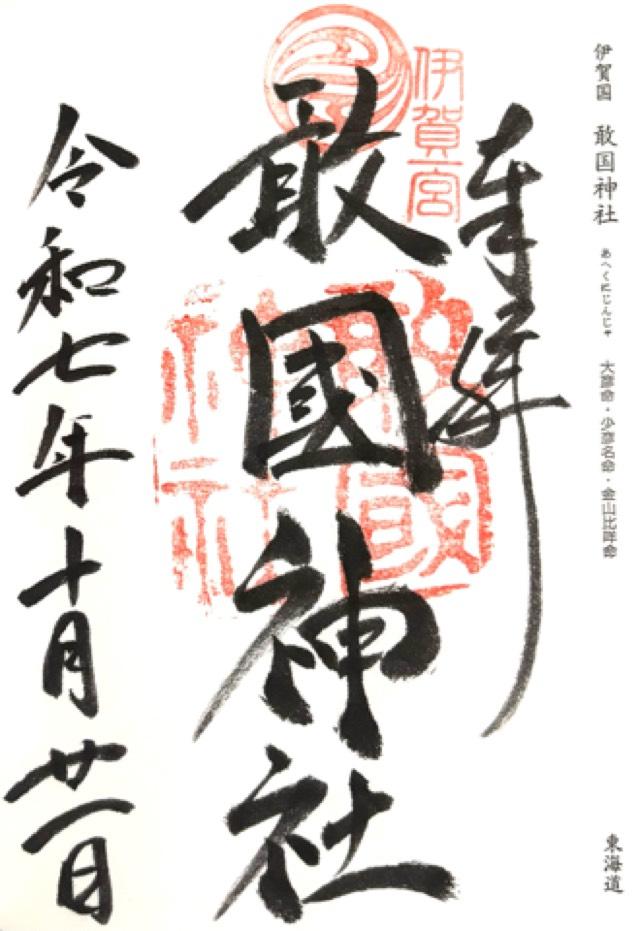 伊賀国 敢国神社 あへくにじんじゃ 大彦命・少彦名命・金山比咩命
東海道
奉拝
伊賀一宮
敢國神社
敢國
神社
令和七年十月廿一日